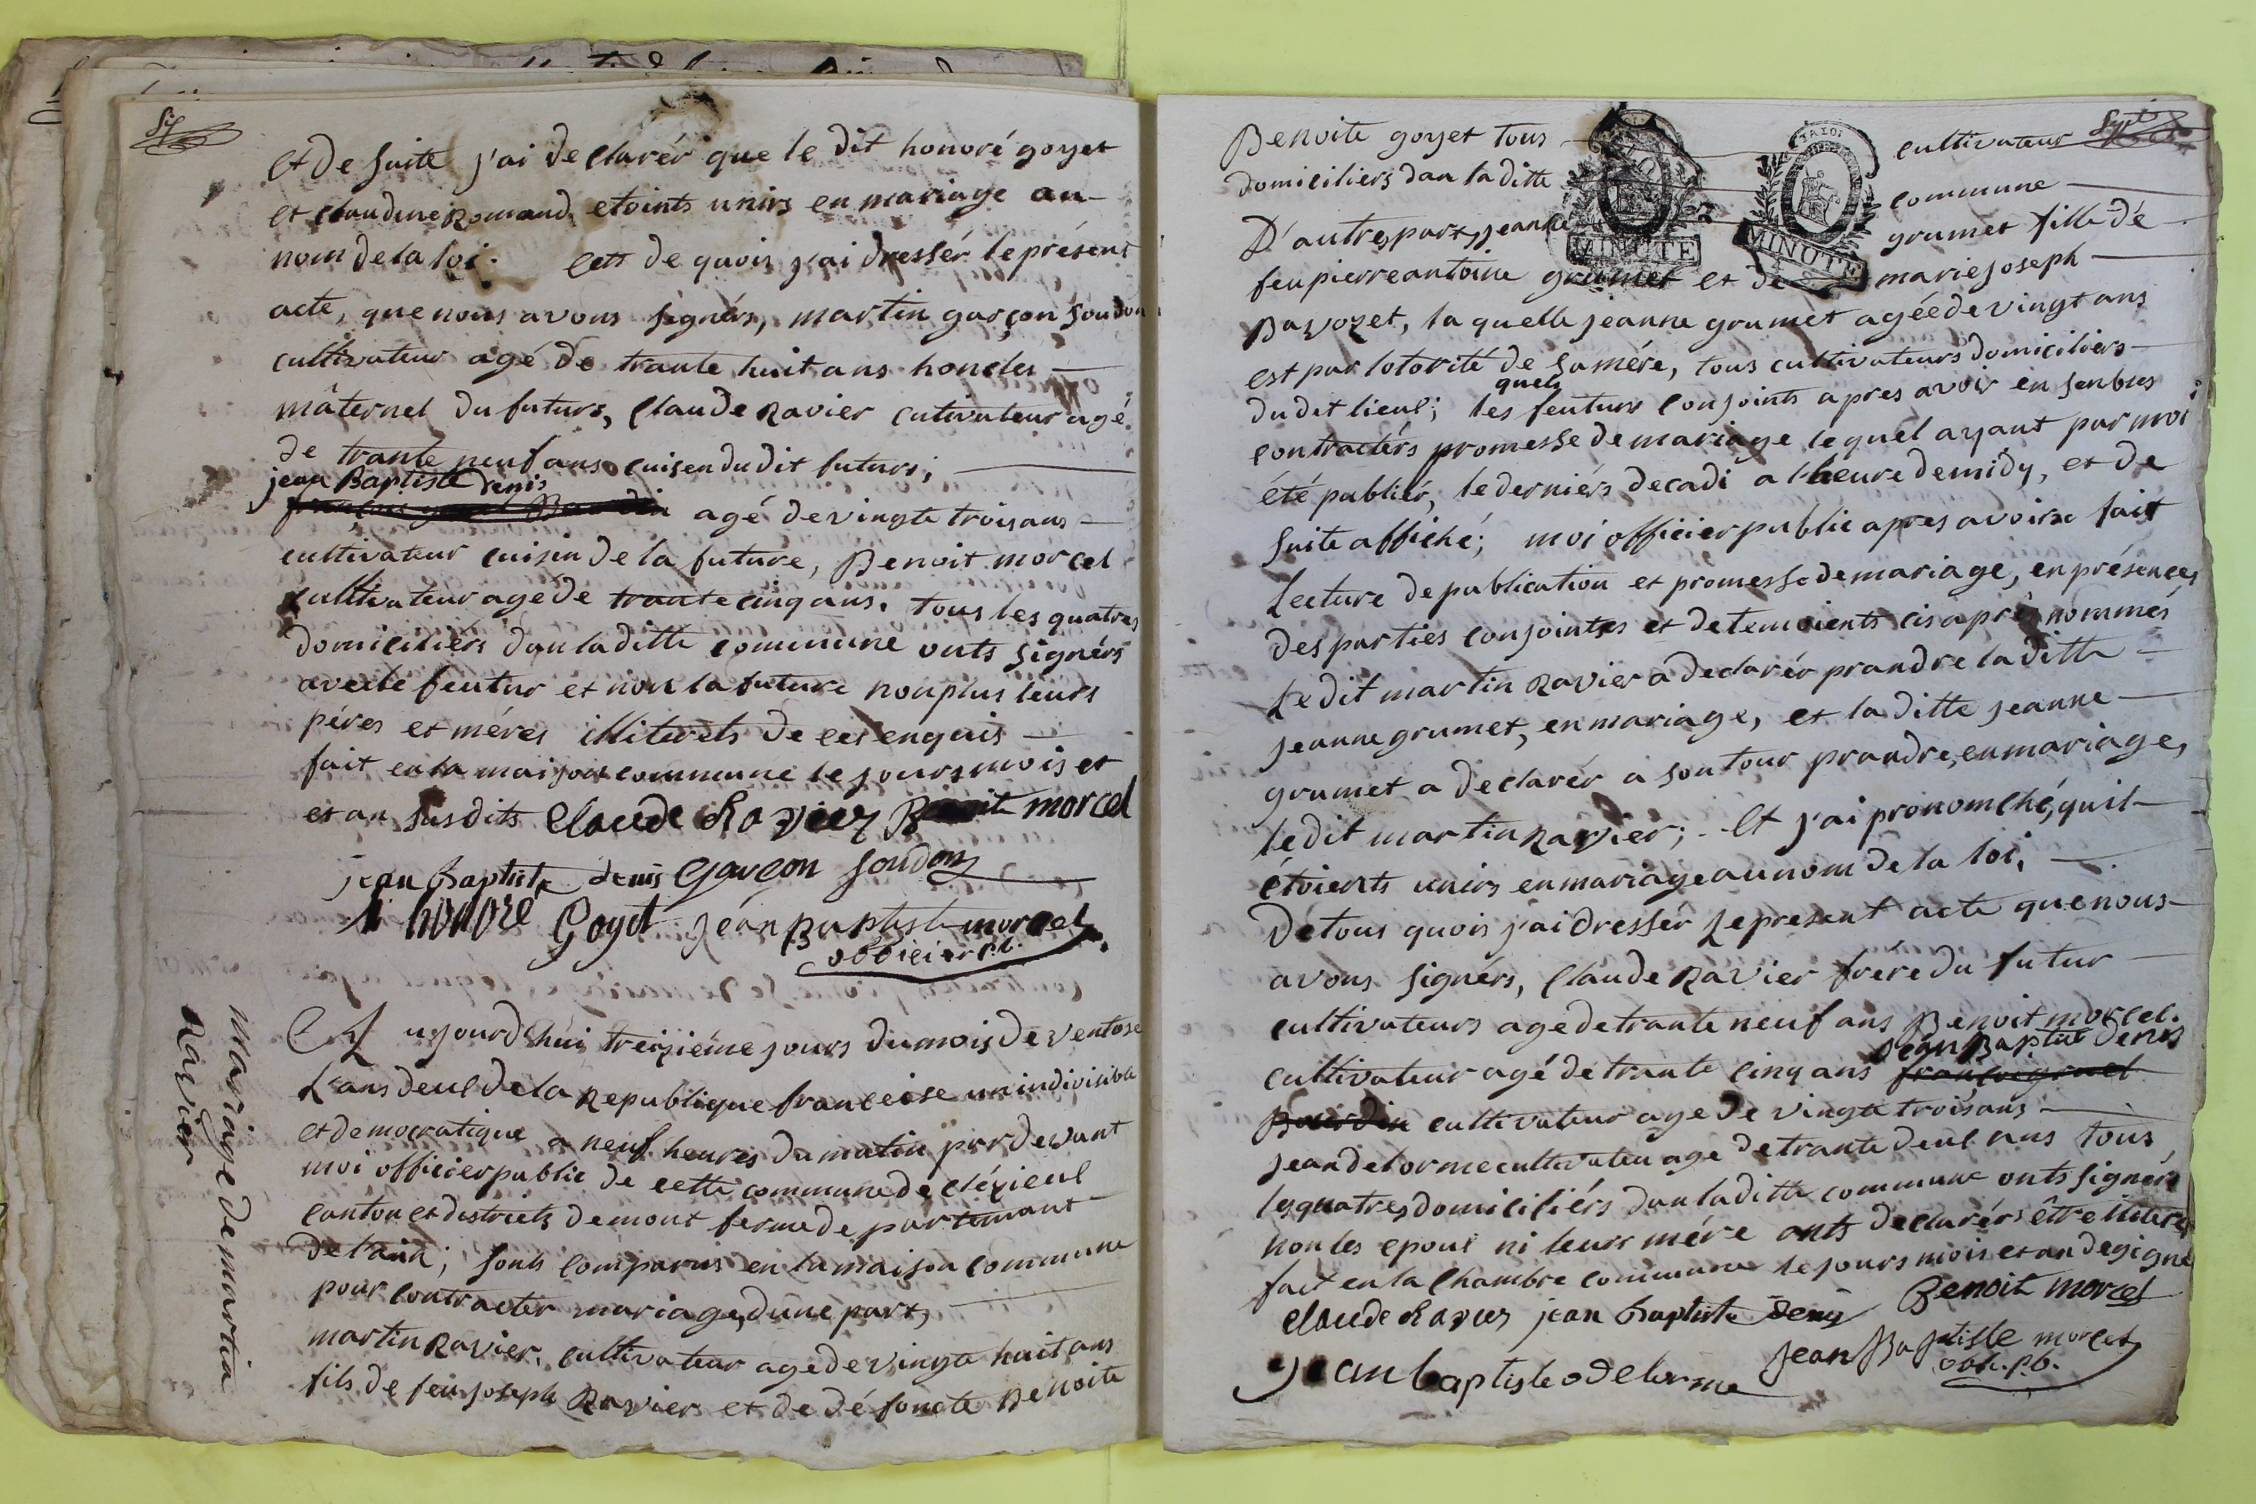 Six
Et de suite j'ai declarér que le dit honoré goyet
et claudine Romand etoints unirs en mariage au
nom de la loi. Cett de quoir j'ai dressér le présent
acte, que nous avons signérs, martin garçon Soudon
cultivateur agé de trante huit ans honcles
mâternel du futurs, Claude Ravier cutivateur agé
de trante neuf ans cuisen du dit futurs;
jean Baptiste denis
agé de vingte trois ans
cultivateur cuisin de la future, Benoit morcel
cultivateur agé de trante cinq ans. tous les quatres
domiciliérs dan la ditte commune onts signérs
avec le feutur et non la future non plus leurs
péres et méres illiterets de ces enquis
fait en la maison commune le jours mois et
et an susdits Claude Ravier Benoit morcel
jean Baptiste denis Garcon Soudon
honoré Goyet jéan Baptiste morcel
officier p.b.
mariage de martin
Ravier
Aujourd'hui treizième jours du mois de ventose
L'ans deul de la Republique franceise un indivisible
et democratique a neuf heures du matin par devant
moi officier public de cette commune de clézieul
canton et districts de mont ferme departemant
de l'ain; sonts comparus en la maison commune
pour contracter mariage, d'une part,
martin Ravier. cultivateur age de vingte huit ans
fils de feu joseph Ravier et de défuncte Benoite
Sept
Benoite goyet tous cultivateur
domiciliers dan la ditte commune
D'autre, part, jeanne grumet fille dé
feu pierre antoine grumet et de marie joseph
Bavozet, la quelle jeanne grumet agéé de vingt ans
est par lotorité de sa mére, tous cultivateurs domiciliers
quels
du dit lieul; les feuturs conjoints apres avoir en senbles
contractérs promesse de mariage lequel ayant par moi
été publiér, le derniérs decadi a l'heure de midy, et de
suite affiché; moi officier public apres avoire fait
Lecture de publication et promesse de mariage, en présences
des parties conjointes et de temoients cis aprés nommés
Le dit martin Ravier a declarér prandre la ditte
jeanne grumet, en mariage, et la ditte jeanne
grumet a declarér a son tour prandre, en mariage,
le dit martin Ravier; Et j'ai pronomché, quil
étoients unirs en mariage au nom de la loi,
De tous quois j'ai dressér le present acte que nous
avons signérs, Claude Ravier frére du futur
cultivateurs age de trante neuf ans Benoit morcel.
jean Baptiste denis
cultivateur agé de trante cinq ans francois gruel
Bourdin cultivateur age de vingte trois ans
jean delorme cultivateu age de trante deul ans tous
les quatres domiciliérs dan la ditte commune onts signérs
non les epoul ni leurs mére onts declarérs être
fait en la Chambre commune le jours mois et an designé
Claude Ravier jean Baptiste denis Benoit morcel
jean Baptiste delorme jean Baptiste morcel
off. p.b.
MINUTE
MINUTE